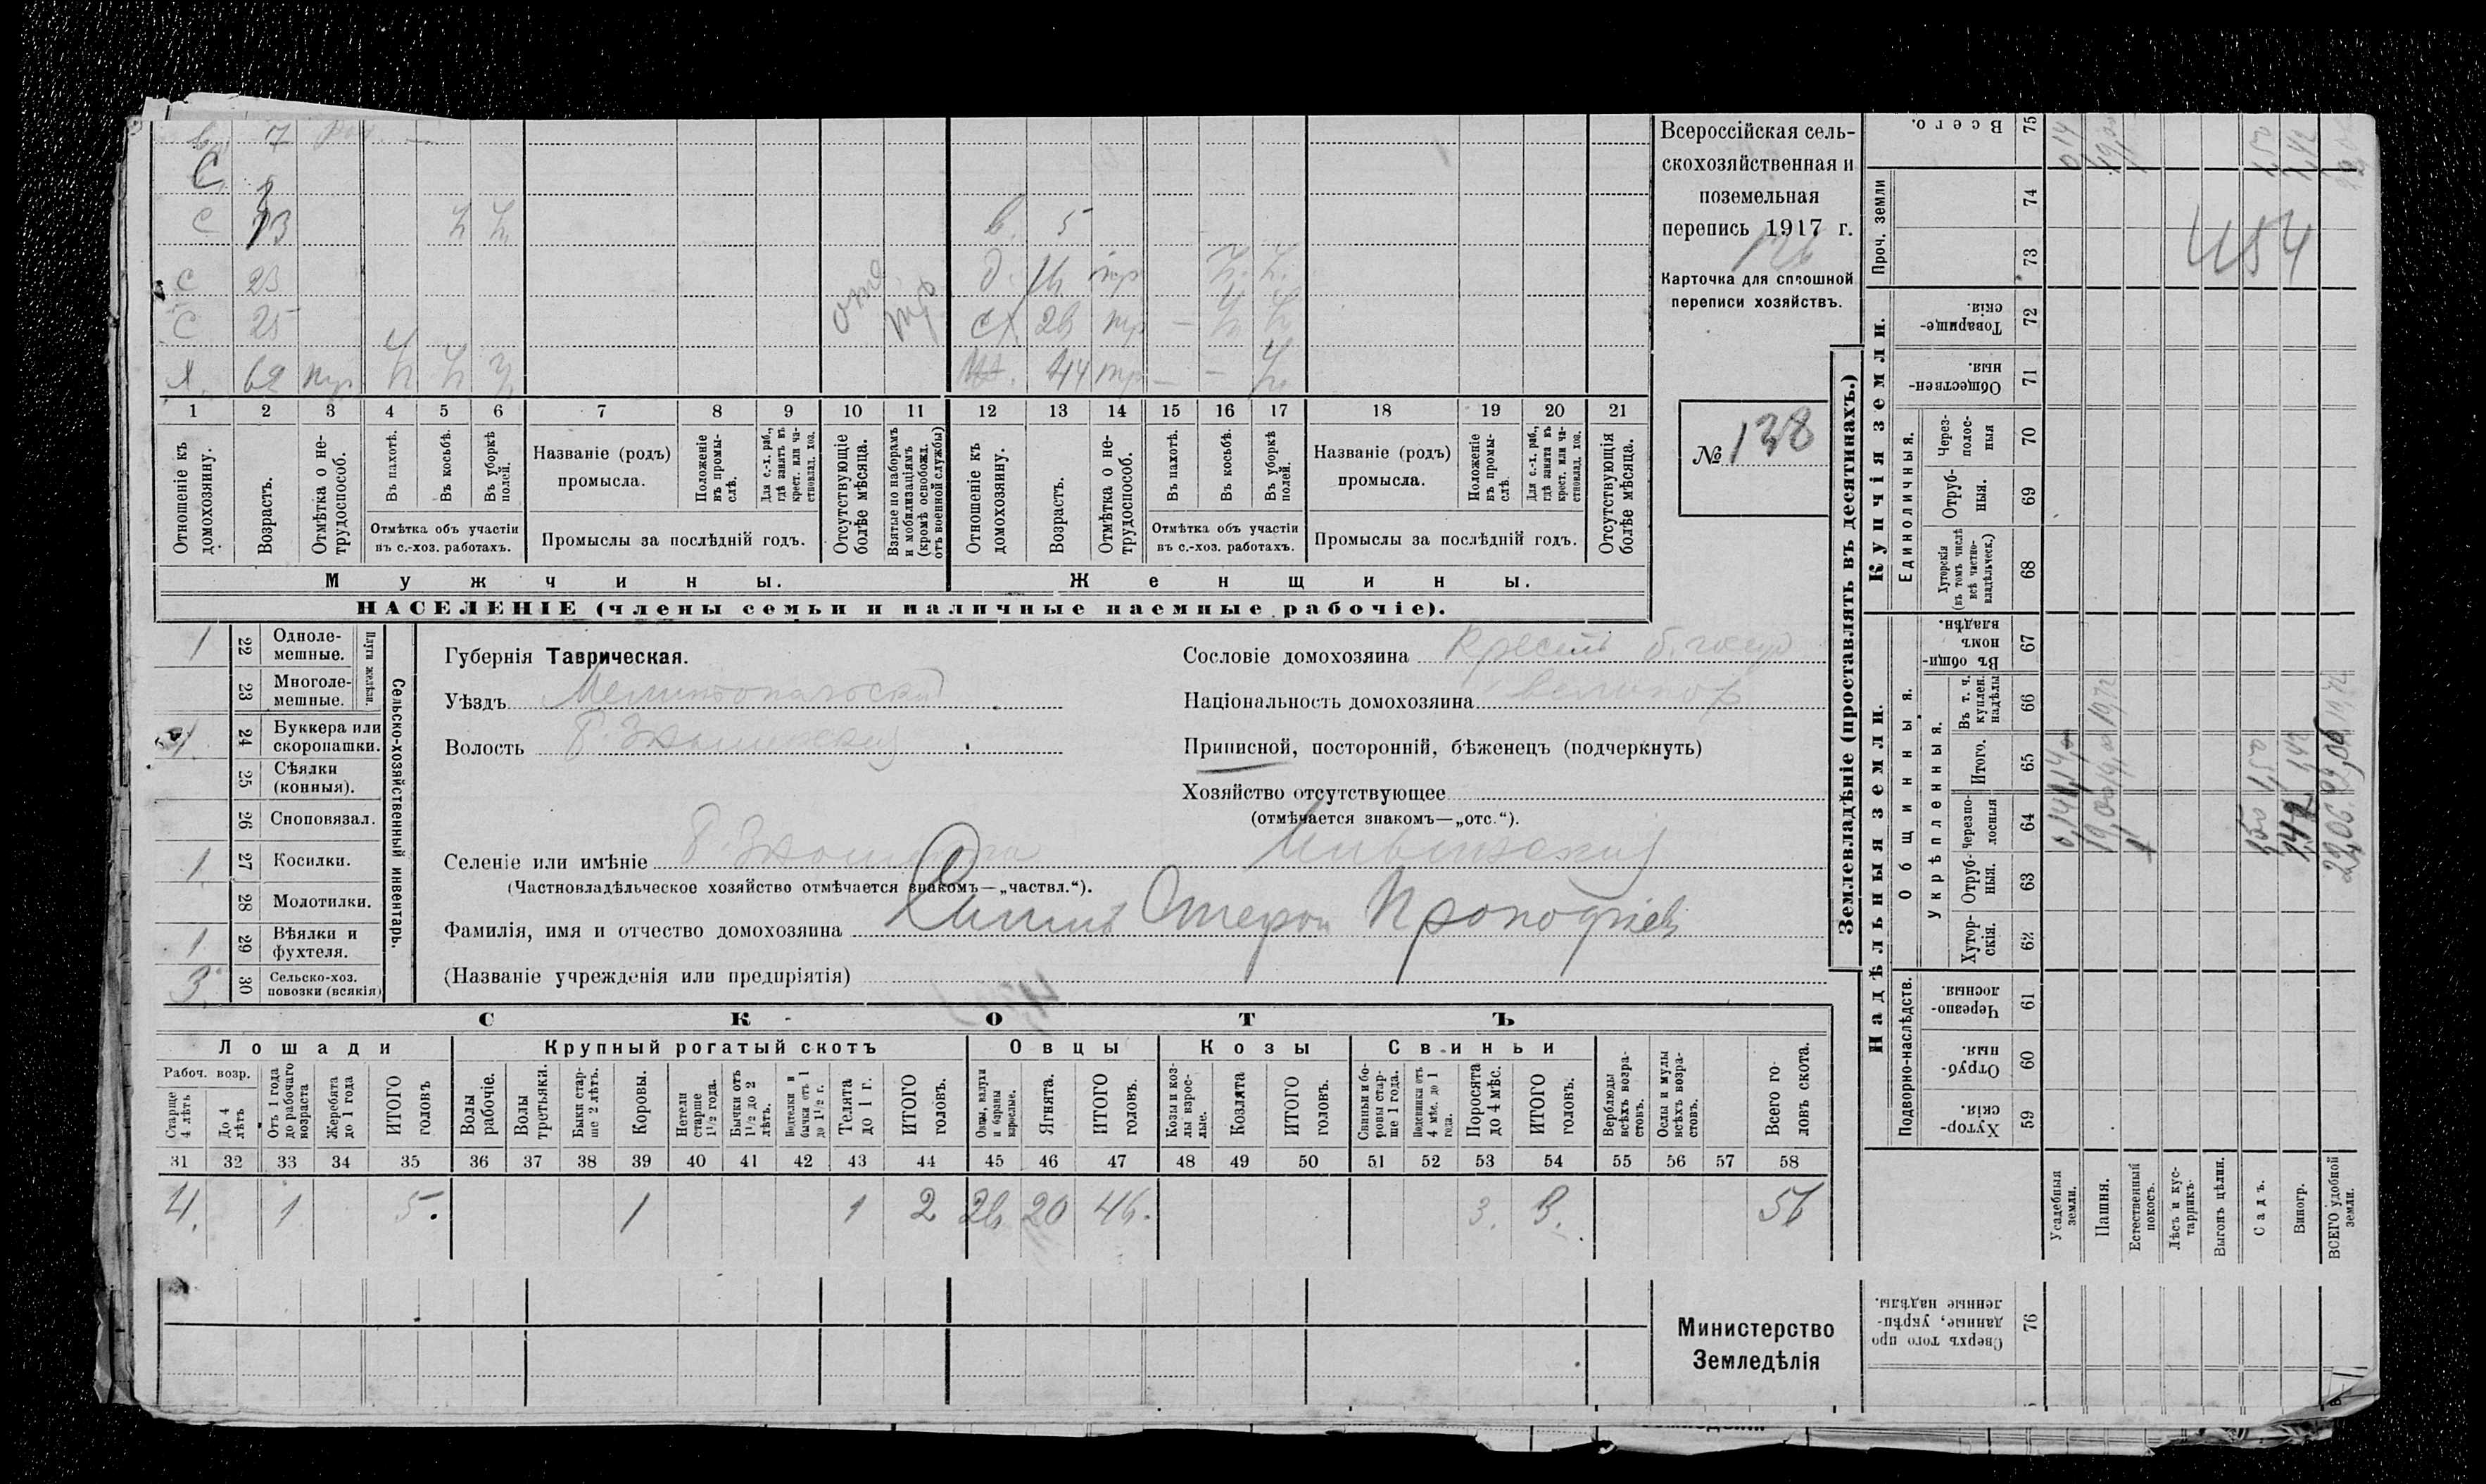 в. 7
С
с 13 ½ ½ в. 5
с 23 д. 16 тр ½ ½
С 25 сх 26 тр — ½ ½
Я. 62 тр ½ ½ ½ 44 тр — — ½
1 2 3 4 5 6 7 8 9 10 11 12 13 14 15 16 17 18 19 20 21
Отношеніе къ домохозяину.
Возрастъ.
Отмѣтка о не-трудоспособ.
Въ пахотѣ.
Въ косьбѣ.
Въ уборкѣ полей.
Отмѣтка объ участіи
въ с.-хоз. работахъ.
Названіе (родъ)
промысла.
Положеніе въ промы-слѣ.
Для с.-х. раб., гдѣ занятъ въ крест. или ча-стновлад. хоз.
Промыслы за послѣдній годъ.
Отсутствующіе болѣе мѣсяца.
Взятые по наборамъ и мобилизаціямъ (кромѣ освобожд. отъ военной службы)
Отношеніе къ домохозяину.
Возрастъ.
Отмѣтка о не-трудоспособ.
Въ пахотѣ.
Въ косьбѣ.
Въ уборкѣ полей.
Отмѣтка объ участіи
въ с.-хоз. работахъ.
Названіе (родъ)
промысла.
Положеніе въ промы-слѣ.
Для с.-х. раб., гдѣ занята въ крест. или ча-стновлад. хоз.
Промыслы за послѣдній годъ.
Отсутствующія болѣе мѣсяца.
Мужчины. Женщины.
НАСЕЛЕНІЕ (члены семьи и наличные наемные рабочіе).
Всероссійская сель-
скохозяйственная и
поземельная
перепись 1917 г.
126
Карточка для сплошной
переписи хозяйствъ.
№ 138
1 22 Одноле-
мешные.
23 Многоле-
мешные.
Плуги желѣзн.
1. 24 Буккера или
скоропашки.
25 Сѣялки
(конныя).
26 Сноповязал.
1 27 Косилки.
28 Молотилки.
1. 29 Вѣялки и
фухтеля.
3. 30 Сельско-хоз.
повозки (всякія)
Сельско-хозяйственный инвентарь.
Губернія Таврическая.
Уѣздъ Мелитопольскій
Волость Б Знаменская
Селеніе или имѣніе Б. Знаменка
(Частновладѣльческое хозяйство отмѣчается знакомъ—„частвл.“).
Фамилія, имя и отчество домохозяина Прокофіев
(Названіе учрежденія или предпріятія)
Сословіе домохозяина Крестьян б. госуд
Національность домохозяина великор
Приписной, посторонній, бѣженецъ (подчеркнуть)
Хозяйство отсутствующее
(отмѣчается знакомъ—„отс.“).
СКОТЪ
Лошади Крупный рогатый скотъ Овцы Козы Свиньи
Рабоч. возр.
Старше 4 лѣтъ
До 4 лѣтъ
Отъ 1 года до рабочаго возраста
Жеребята до 1 года
ИТОГО головъ
Волы рабочіе.
Волы третьяки.
Быки стар-ше 2 лѣтъ.
Коровы.
Нетели старше 1½ года.
Бычки отъ 1½ до 2 лѣтъ.
Нетелки и бычки отъ 1 до 1½ г.
Телята до 1 г.
ИТОГО головъ.
Овцы, валухи и бараны взрослые.
Ягнята.
ИТОГО головъ.
Козы и коз-лы взрос-лые.
Козлята
ИТОГО головъ.
Свиньи и бо-ровы стар-ше 1 года.
Подсвинки отъ 4 мѣс. до 1 года.
Поросята до 4 мѣс.
ИТОГО головъ.
Верблюды всѣхъ возра-стовъ.
Ослы и мулы всѣхъ возра-стовъ.
Всего го-ловъ скота.
31 32 33 34 35 36 37 38 39 40 41 42 43 44 45 46 47 48 49 50 51 52 53 54 55 56 57 58
4. 1 5. 1 1 2 26 20 46. 3. 3. 56
Министерство
Земледѣлія
Землевладѣніе (проставлять въ десятинахъ.)
Надѣльныя земли. Купчія земли. Проч. земли
Подворно-наслѣдств. Общинныя. Единоличныя.
Укрѣпленныя.
Хутор-скія. 59
Отруб-ныя. 60
Черезпо-лосныя. 61
Хутор-скія. 62
Отруб-ныя. 63
Черезпо-лосныя 64
Итого. 65
Въ т. ч. куплен. надѣлы 66
Въ общин-номъ владѣн. 67
Хуторскія (въ томъ числѣ всѣ частно-владѣльческ.) 68
Отруб-ныя. 69
Через-полос-ныя 70
Обществен-ныя. 71
Товарище-скія. 72
73
74
Всего. 75
Сверхъ того про-данные, укрѣп-ленные надѣлы. 76
Усадебныя земли. 0,14
Пашня. 19,00
Естественный покосъ. 1
Лѣсъ и кус-тарникъ.
Выгонъ цѣлин.
Садъ. 1,50
Виногр. 1,42
ВСЕГО удобной земли. 22,06
454